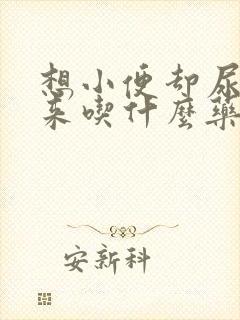 想小便却尿
来喫什麼藥
安新科